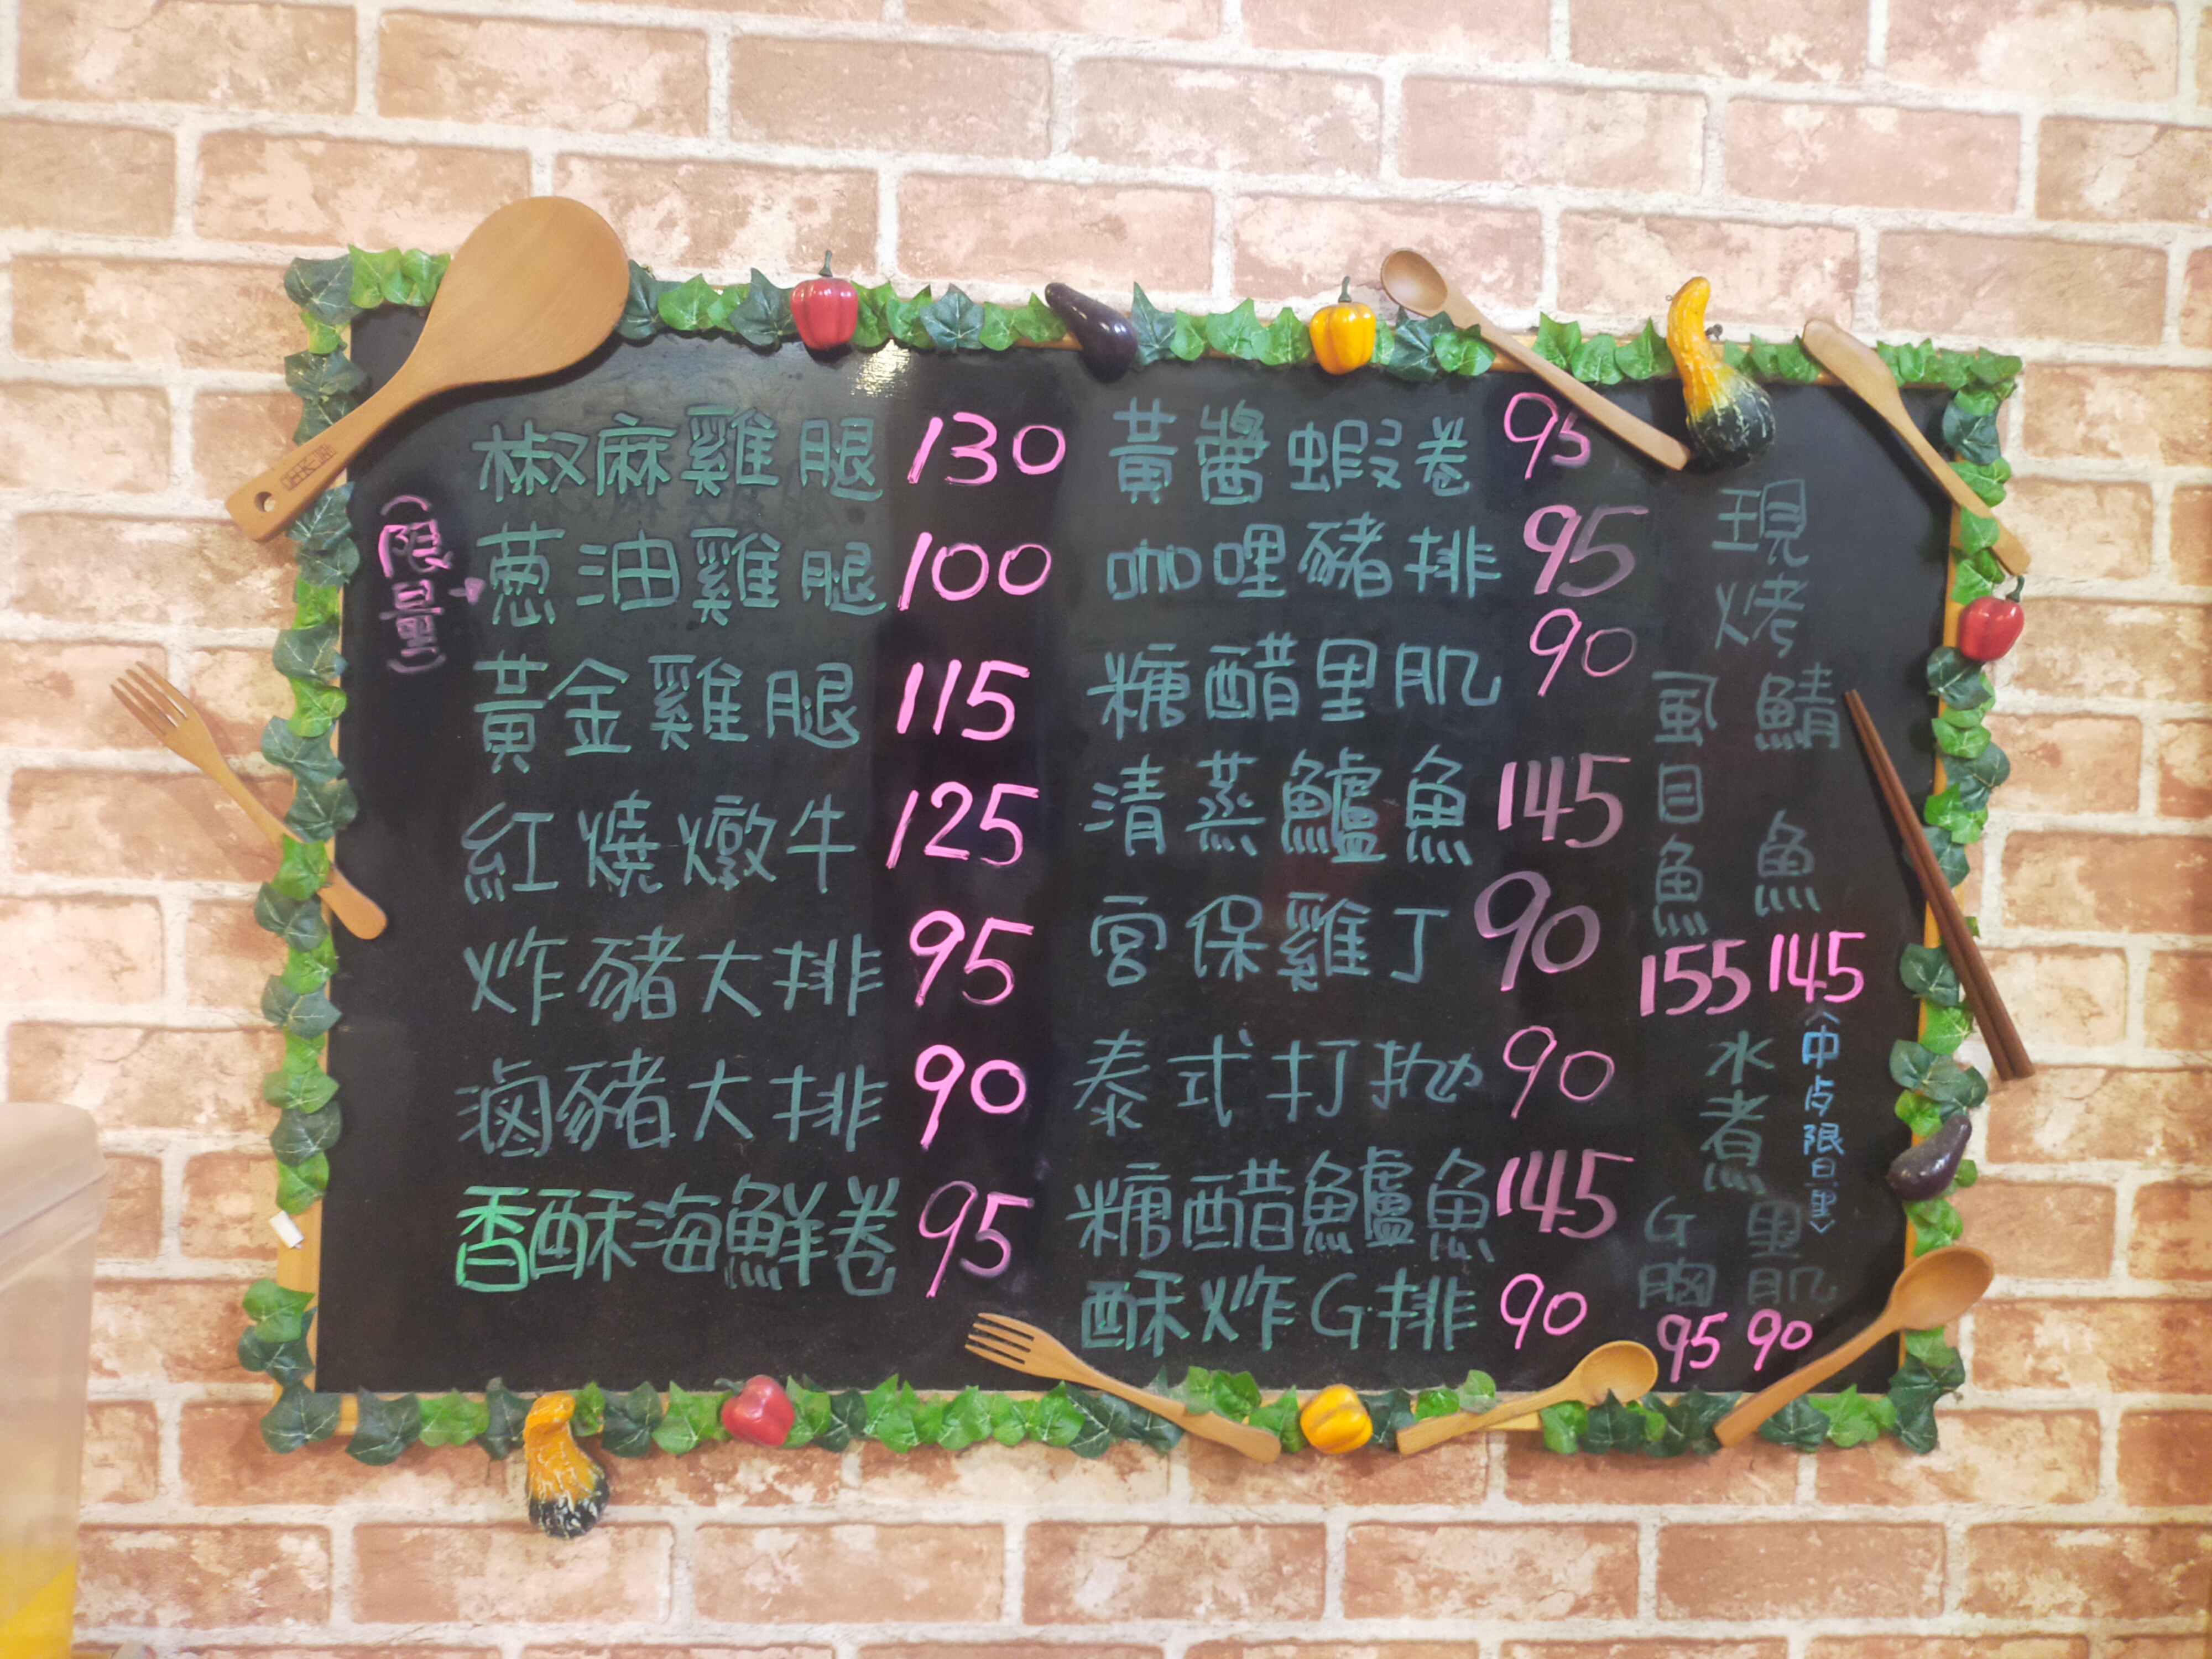 椒麻雞腿 130
(限量)
葱油雞腿 100
黃金雞腿 115
紅燒燉牛 125
炸豬大排 95
滷豬大排 90
香酥海鮮卷 95
黃醬蝦卷 95
咖哩豬排 95
糖醋里肌 90
清蒸鱸魚 145
宮保雞丁 90
泰式打拋 90
糖醋鱸魚 145
酥炸G排 90
現烤
鯖魚 145
虱目魚 155
(中午限量)
水煮
里肌 90
G胸 95